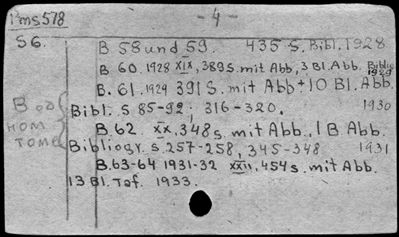 1²ms578 - 4 -
S6. B 58 und 59. 435 S. Bibl. 1928
B. 60. 1928 XIX, 389 S. mit Abb, 3 Bl. Abb. Biblio
1929
B. 61. 1929 391 S. mit Abb + 10 Bl. Abb.
Bibl. S 85-92; 316-320. 1930
B. 62. XX, 348 s. mit Abb., 1 B Abb.
Bibliogr. s. 257-258, 345-348 1931
B. 63-64 1931-32 XXII, 454 s. mit Abb.
13 Bl. Taf. 1933.
HOM
TOME